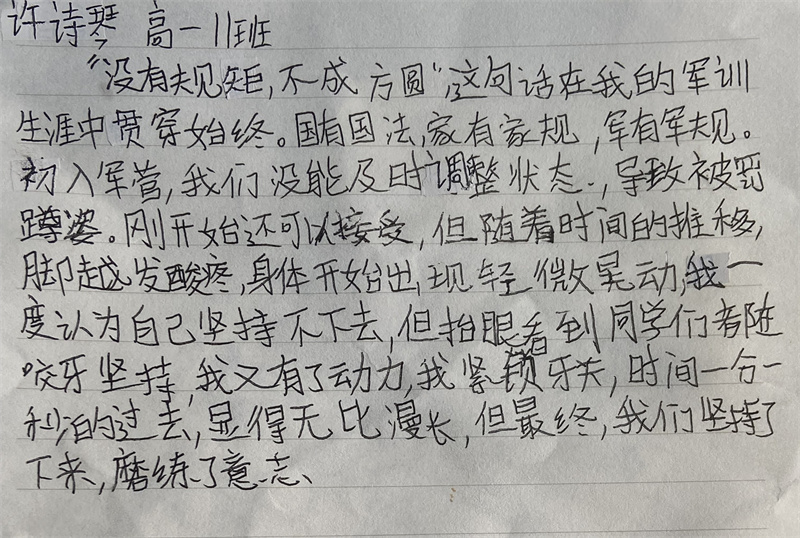 许诗琴 高一11班
“没有规矩,不成方圆”,这句话在我的军训
生涯中贯穿始终。国有国法,家有家规,军有军规。
初入军营,我们没能及时调整状态,导致被罚
蹲姿。刚开始还可以接受,但随着时间的推移,
脚越发酸疼,身体开始出现轻微晃动,我一
度认为自己坚持不下去,但抬眼看到同学们都在
咬牙坚持,我又有了动力,我紧锁牙关,时间一分一
秒的过去,显得无比漫长,但最终,我们坚持了
下来,磨练了意志、